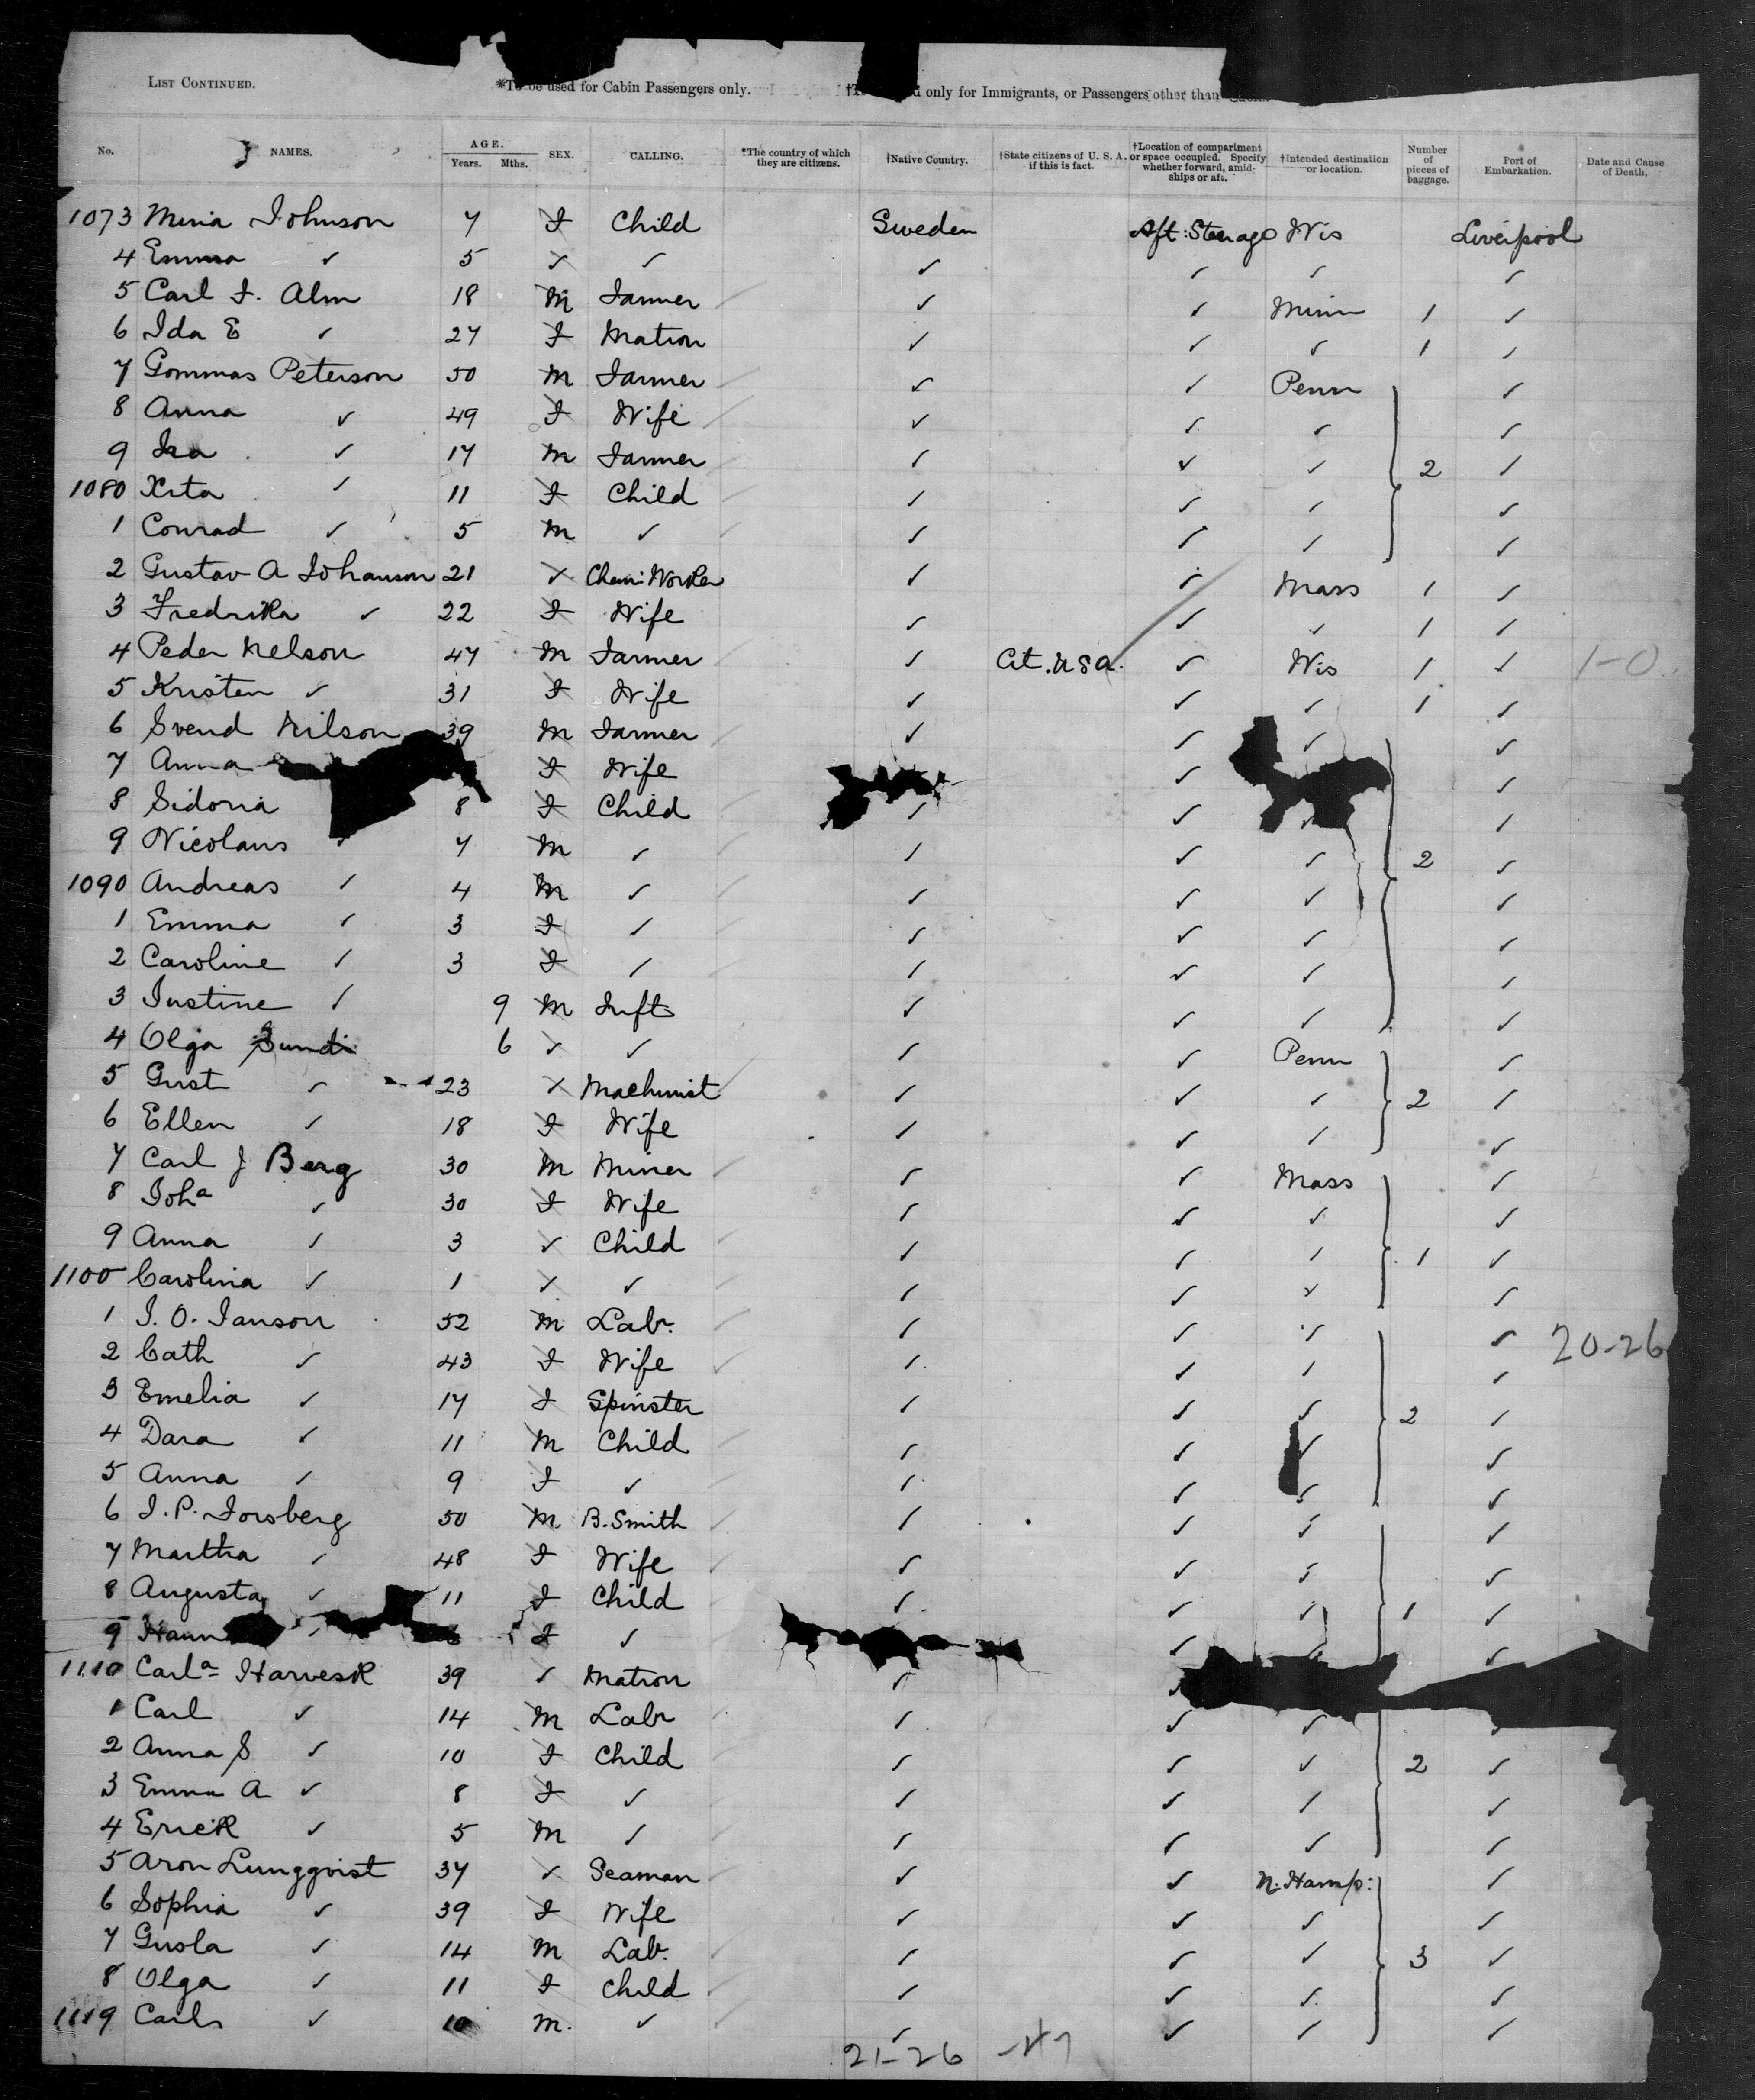 LIST CONTINUED. *To be used for Cabin Passengers only. only for Immigrants, or Passengers other than
No. NAMES. AGE. Years. Mths. SEX. CALLING. *The country of which they are citizens. †Native Country. †State citizens of U. S. A. if this is fact. †Location of compartment or space occupied. Specify whether forward, amidships or aft. †Intended destination or location. Number of pieces of baggage. Port of Embarkation. Date and Cause of Death.
1073 Johnson 7 F Child Sweden Aft: Steerage Wis Liverpool
4 Emma ✓ 5 ✓ ✓ ✓ ✓ ✓ ✓
5 Carl F. Alm 18 M Farmer ✓ ✓ Minn 1 ✓
6 Ida E ✓ 27 F Matron ✓ ✓ ✓ 1 ✓
7 Gommas Peterson 50 M Farmer ✓ ✓ Penn ✓
8 Anna ✓ 49 F Wife ✓ ✓ ✓ ✓
9 ✓ 17 M Farmer ✓ ✓ ✓ 2 ✓
1080 ✓ 11 F Child ✓ ✓ ✓ ✓
1 Conrad ✓ 5 M ✓ ✓ ✓ ✓ ✓
2 Gustav A Johanson 21 ✓ Chem: Worker ✓ ✓ Mass 1 ✓
3 Fredrika ✓ 22 F Wife ✓ ✓ ✓ 1 ✓
4 Peder Nelson 47 M Farmer ✓ Cit. USA. ✓ Wis 1 ✓ 1-0
5 Kristen ✓ 31 F Wife ✓ ✓ ✓ 1 ✓
6 Svend Nilson 39 M Farmer ✓ ✓ ✓ ✓
7 Anna F Wife ✓ ✓
8 Sidoria 8 F Child ✓ ✓ ✓ ✓
9 Nicolaus ✓ 7 M ✓ ✓ ✓ ✓ 2 ✓
1090 Andreas ✓ 4 M ✓ ✓ ✓ ✓ ✓
1 Emma ✓ 3 F ✓ ✓ ✓ ✓ ✓
2 Caroline ✓ 3 F ✓ ✓ ✓ ✓ ✓
3 Justine ✓ 9 M Inft ✓ ✓ ✓ ✓
4 Olga 6 ✓ ✓ ✓ ✓ Penn ✓
5 Gust ✓ 23 ✓ Machinist ✓ ✓ ✓ 2 ✓
6 Ellen ✓ 18 F Wife ✓ ✓ ✓ ✓
7 Carl J Berg 30 M Miner ✓ ✓ Mass ✓
8 Joha ✓ 30 F Wife ✓ ✓ ✓ ✓
9 Anna ✓ 3 ✓ Child ✓ ✓ ✓ 1 ✓
1100 Carolina ✓ 1 ✓ ✓ ✓ ✓ ✓ ✓
1 J. O. Janson 52 M Labr. ✓ ✓ ✓ ✓ 20-26
2 Cath ✓ 43 F Wife ✓ ✓ ✓ ✓
3 Emelia ✓ 17 F Spinster ✓ ✓ ✓ 2 ✓
4 Dara ✓ 11 M Child ✓ ✓ ✓ ✓
5 Anna ✓ 9 F ✓ ✓ ✓ ✓ ✓
6 J. P. Forsberg 50 M B. Smith ✓ ✓ ✓ ✓
7 Martha ✓ 48 F Wife ✓ ✓ ✓ ✓
8 Augusta ✓ 11 F Child ✓ ✓ ✓ 1 ✓
9 ✓ F ✓ ✓ ✓ ✓
1110 Carla Harvesk 39 ✓ Matron ✓ ✓
1 Carl ✓ 14 M Labr ✓ ✓ ✓ ✓
2 Anna S ✓ 10 F Child ✓ ✓ ✓ 2 ✓
3 Emma A ✓ 8 F ✓ ✓ ✓ ✓ ✓
4 Erick ✓ 5 M ✓ ✓ ✓ ✓ ✓
5 Aron Lungqvist 37 ✓ Seaman ✓ ✓ N. Hamp: ✓
6 Sophia ✓ 39 F Wife ✓ ✓ ✓ ✓
7 Gusla ✓ 14 M Lab. ✓ ✓ ✓ 3 ✓
8 Olga ✓ 11 F Child ✓ ✓ ✓ ✓
1119 Carl ✓ 10 M. ✓ ✓ ✓ ✓ ✓
21-26